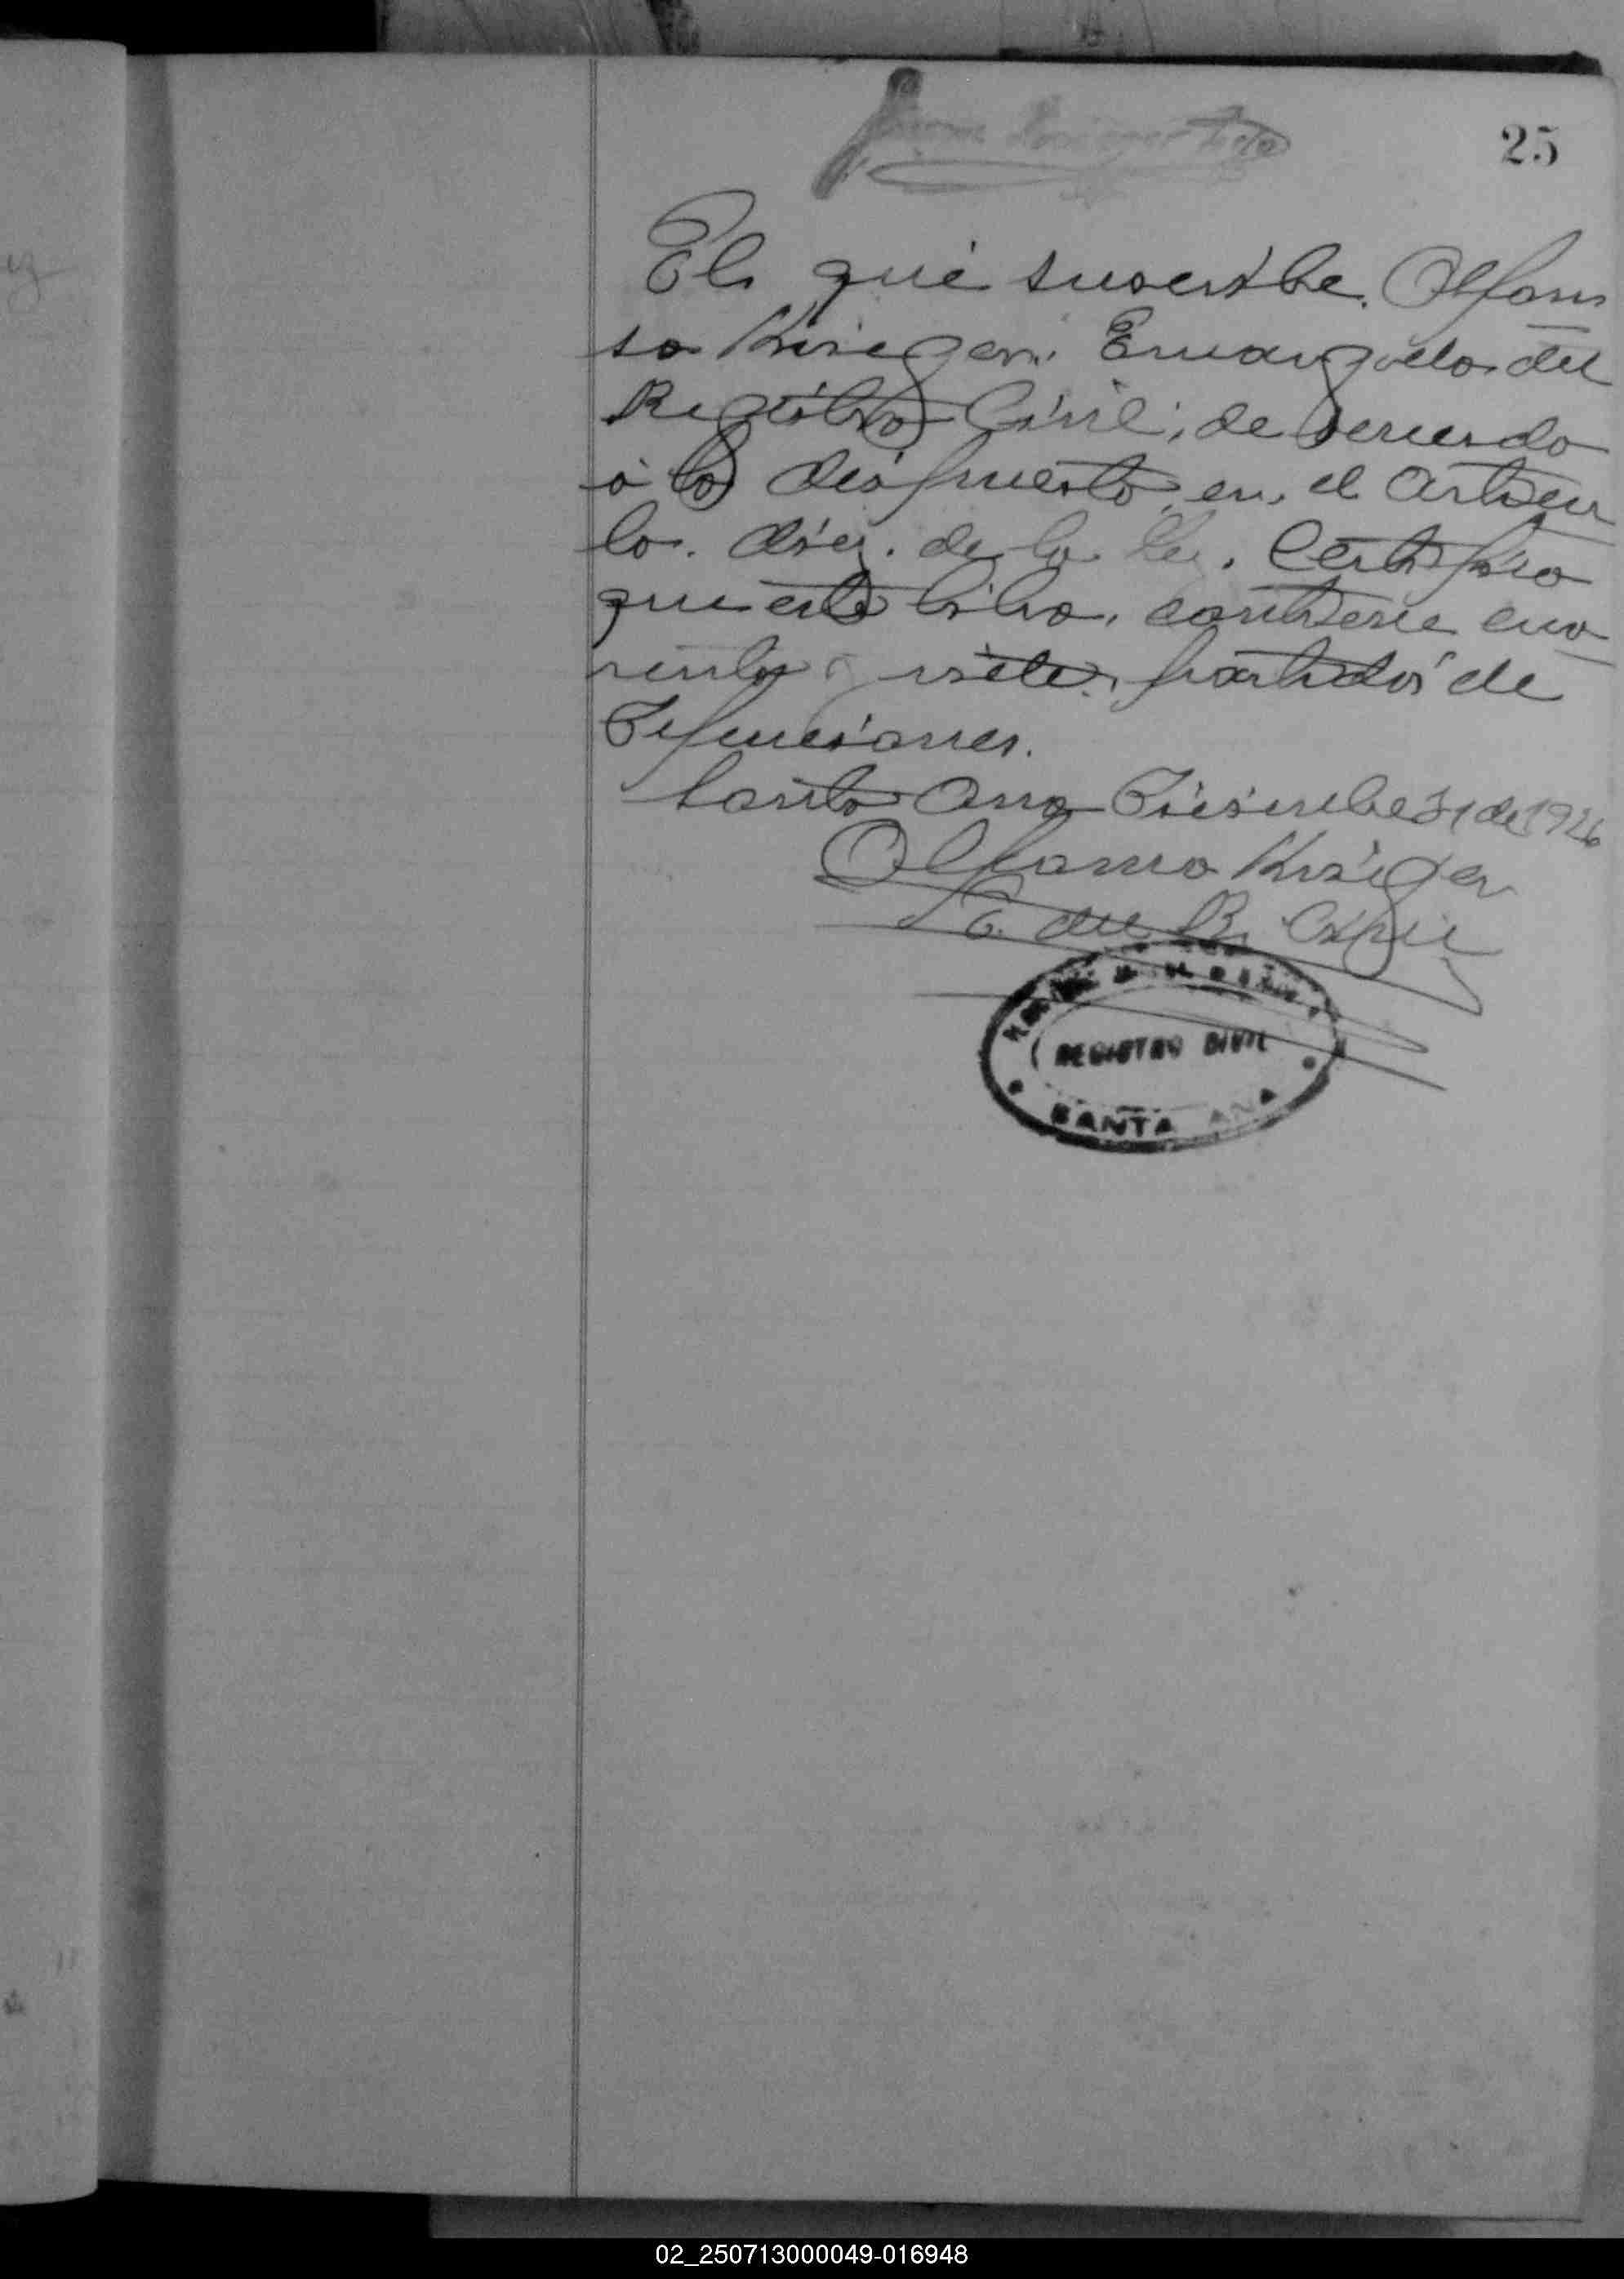 25
El que suscribe. Alfon
so Kriegger. Encargado del
Registro Civil; de acuerdo
a lo dispuesto en el Articu
lo. diez. de la Ley. Certifico
que este libro, contiene cua
renta y siete. partidas de
Defunciones.
Santa Ana Diciembre 31 de 1926
Alfonso Krieger
E. del R. Civil
REGISTRO CIVIL
SANTA ANA
02_250713000049-016948